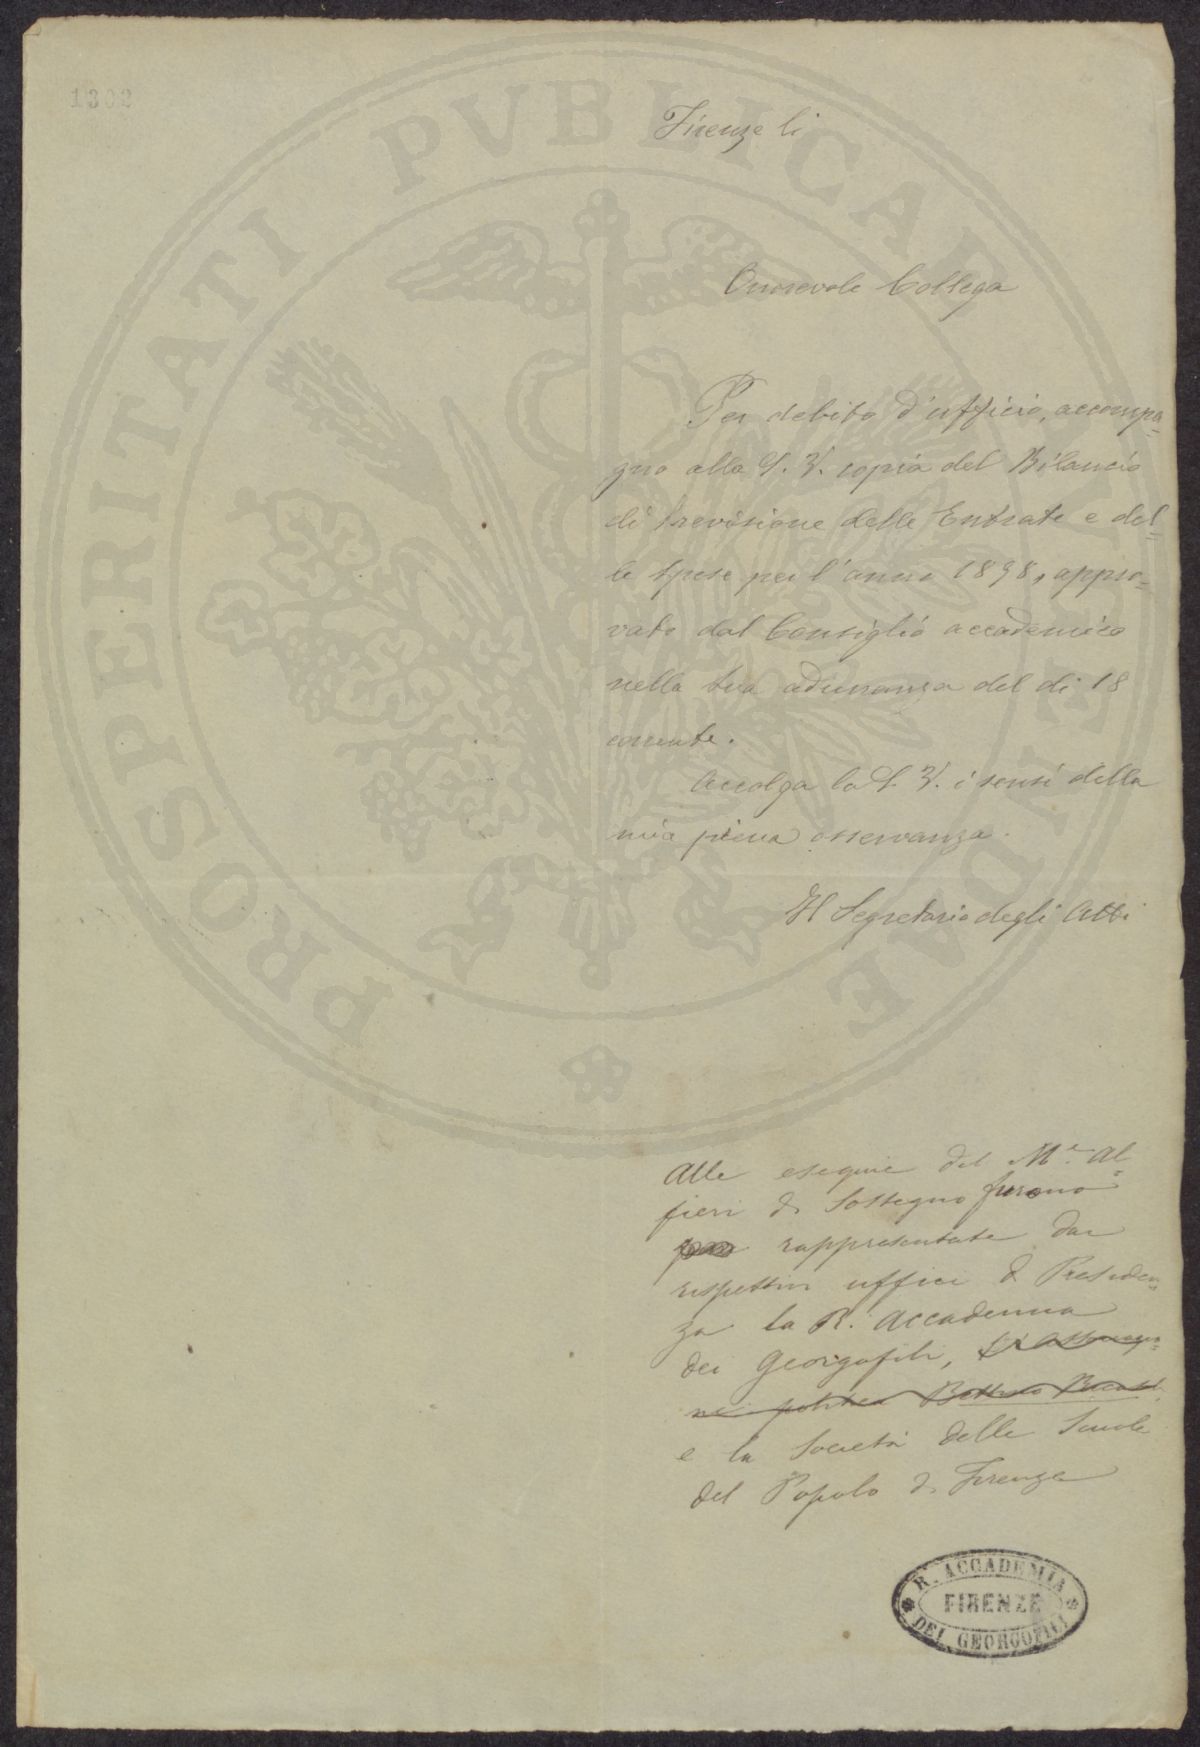 1302
PROSPERITATI PVBLICAE AVGENDAE
Firenze li
Onorevole Collega
Per debito d'ufficio, accompa=
gno alla S. V. copia del Bilancio
di previsione delle Entrate e del=
le spese per l'anno 1898, appro=
vato dal Consiglio accademico
nella sua adunanza del di 18
corrente.
Accolga la S. V. i sensi della
mia piena osservanza.
Il Segretario degli Atti
Alle esequie del M.e Al=
fieri di Sostegno furono
rappresentate dai
rispettivi uffici di Presiden=
za la R. Accademia
dei Georgofili,
ne politica Bettino Ricasoli
e la Società delle Scuole
del Popolo di Firenze
R. ACCADEMIA
FIRENZE
DEI GEORGOFILI